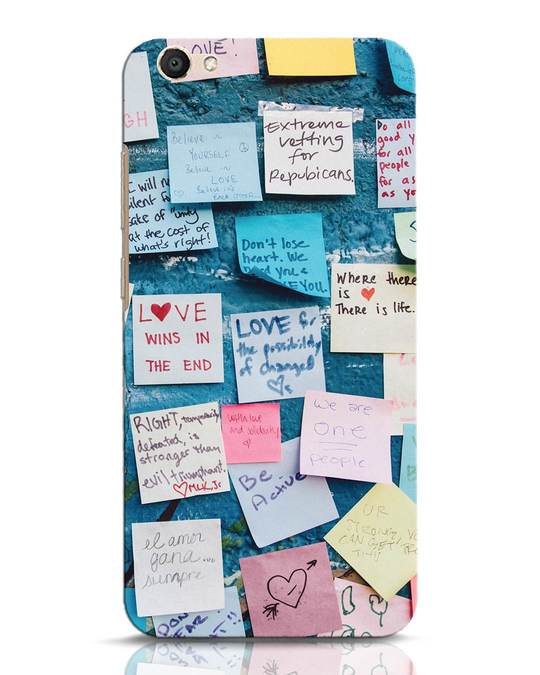 LOVE!
GH
Believe in
YOURSELF
Believe in
LOVE
Believe in
EACH OTHER
Extreme
vetting
for
Repubicans.
Do all
good Y
for all
people
for as
as yo
I will no
silent fo
sake of "unity"
at the cost of
what's right!
Don't lose
heart. We
need you &
LOVE YOU.
S
Where there
is ♥
There is life.
L♥VE
WINS IN
THE END
LOVE for
the possibility
of changed
♡s
RIGHT, temporarily
defeated, is
stronger than
evil triumphant.
♡MLK, Jr.
with love
and solidarity
We are
ONE
people
Be
Active
UR
STRONG
CAN GET
THIS
el amor
gana...
siempre
DON
FEAR